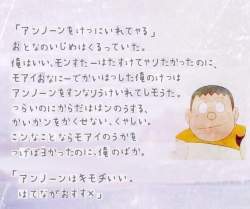 「アンノーンをけつにいれてやる」
おとなのいじめはくるっていた。
俺はいい。モンスたーはたすけてやりたかったのに、
モアイおなにーでかいはつした俺のけつは
アンノーンをすンなりうけいれてしモうた。
つらいのにからだははンのうする、
かいかンをかくせない、くやしい。
こンなことならモアイのうかを
つげばヨかったのに、俺のばか。
「アンノーンはキモヂいい。
はてながおすす×」